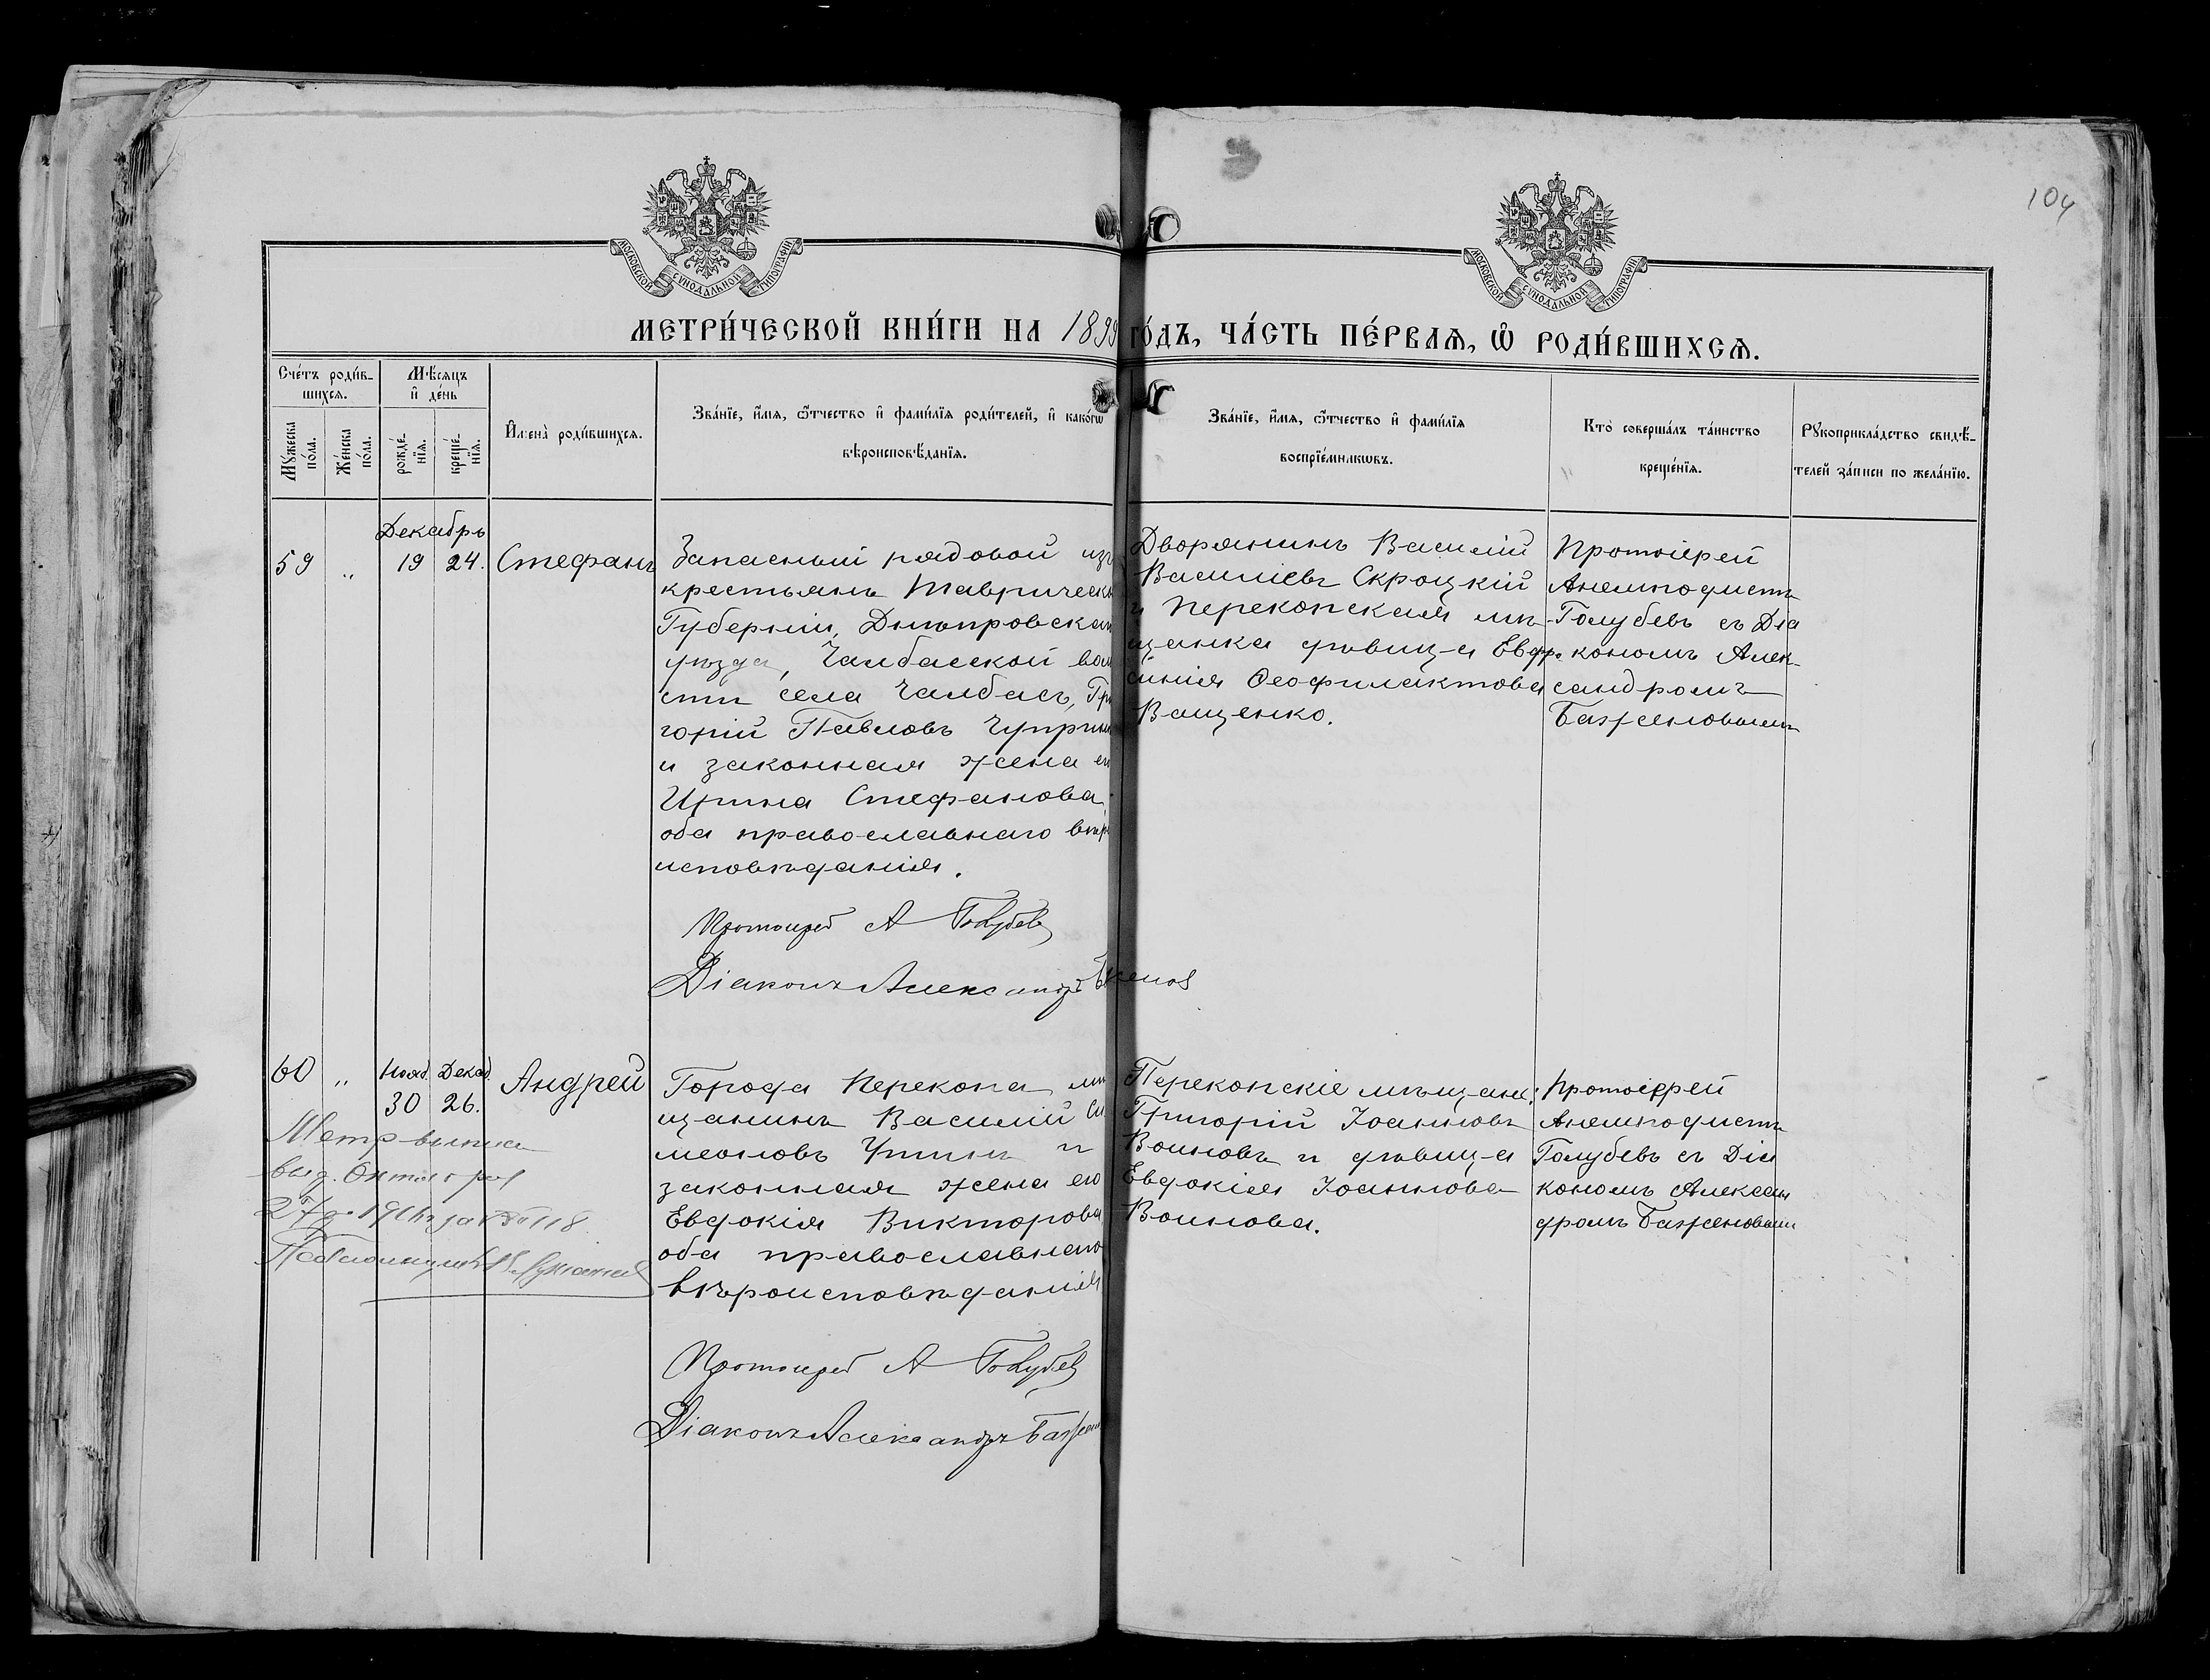 104
МОСКОВСКОЙ СѴНОДАЛЬНОЙ ТИПОГРАФІИ
МОСКОВСКОЙ СѴНОДАЛЬНОЙ ТИПОГРАФІИ
МЕТРИ́ЧЕСКОЙ КНИ́ГИ НА 1899 ГО́ДЪ, ЧА́СТЬ ПЕ́РВАѦ, Ѡ҆ РОДИ́ВШИХСѦ.
Сче́тъ роди́в-
шихсѧ.
Мꙋ́жеска по́ла.
Же́нска по́ла.
Мѣ́сѧцъ
и҆ де́нь
рожде́-
нїѧ.
креще́-
нїѧ.
И҆мена̀ роди́вшихсѧ.
Зва́нїе, и҆́мѧ, ѻ҆́тчество и҆ фами́лїѧ роди́телей, и҆ како́гѡ
вѣроисповѣ́данїѧ.
Зва́нїе, и҆́мѧ, ѻ҆́тчество и҆ фами́лїѧ
воспрїе́мникѡвъ.
Кто̀ соверша́лъ та́инство
креще́нїѧ.
Рꙋкоприкла́дство свидѣ́-
телей за́писи по жела́нїю.
Декабрь
59 „ 19 24. Стефанъ
Запасный рядовой изъ
крестьянъ Таврическ
Губерніи, Днѣпровскаг
уѣзда, Чалбасской вол
сти села Чалбасъ, Гри
горій Павловъ Чуприн
и законная жена ег
Ирина Стефанова
оба православнаго вѣро
исповѣданія.
Протоіерей А Голубев
Діаконъ Александръ Баженов
Дворянинъ Василій
Василіевъ Скроцкій
и Перекопская мѣ-
щанка дѣвица Евфр.
синія Ѳеофилактова
Ващенко.
Протоіерей
Анемподистъ
Голубевъ съ Діа
кономъ Алек-
сандромъ
Баженовымъ
60 „ Нояб. Декаб.
30 26.
Андрей
Города Перекопа мѣ
щанинъ Василій Си
меоновъ и
законная жена его
Евдокія Викторова
оба православнаго
вѣроисповѣданія
Протоіерей А Голубев
Діаконъ Александръ Бажен
Перекопскіе мѣщане:
Григорій Іоанновъ
Воиновъ и дѣвица
Евдокія Іоаннова
Воинова.
Протоіерей
Анемподистъ
Голубевъ съ Діа
кономъ Алексан
дромъ Баженовымъ
Метр выпись
выд. Октября
27
118